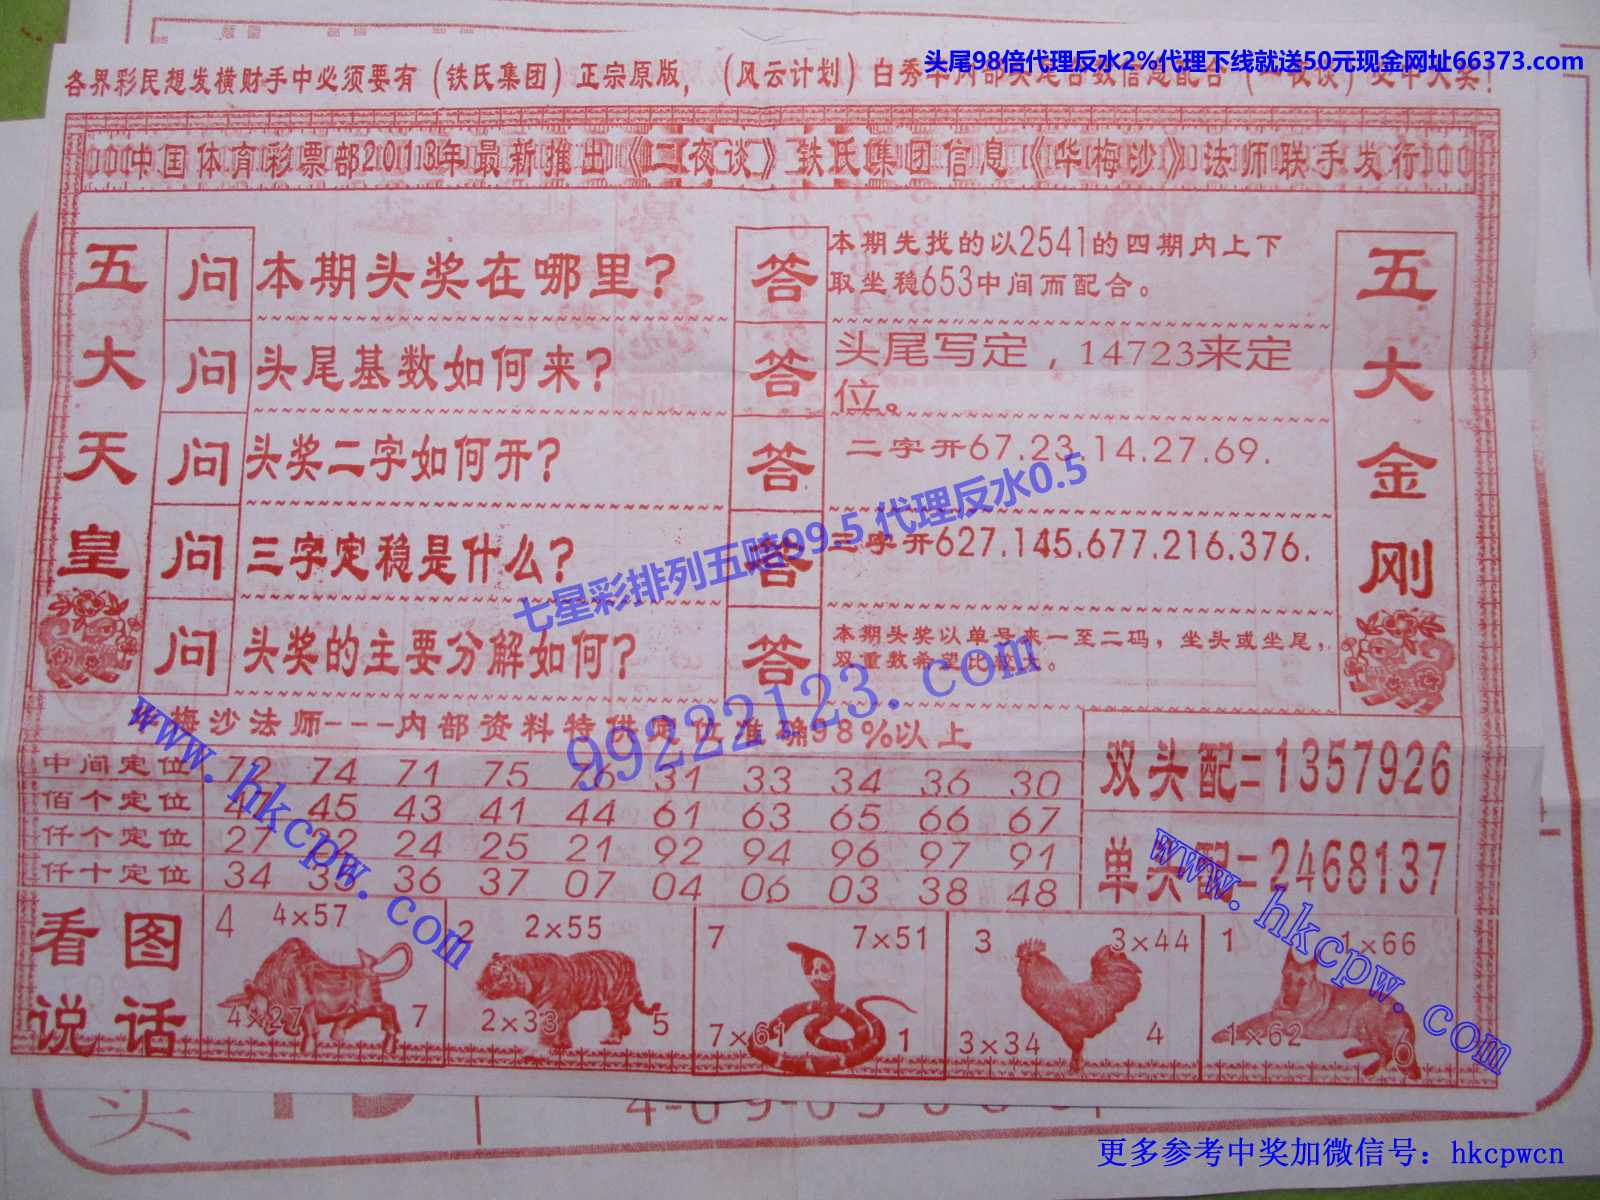 头尾98倍代理反水2%代理下线就送50元现金网址66373.com
各界彩民想发横财手中必须要有（铁氏集团）正宗原版，（风云计划）
中国体育彩票部2013年最新推出《二夜谈》铁氏集团信息《华梅沙》法师联手发行
五大天皇
问 本期头奖在哪里？
答 本期先找的以2541的四期内上下
取坐稳653中间而配合。
问 头尾基数如何来？
答 头尾写定，14723来定
位。
问 头奖二字如何开？
答 二字开67.23.14.27.69.
问 三字定稳是什么？
答 三字开627.145.677.216.376.
问 头奖的主要分解如何？
答 本期头奖以单号来一至二码，坐头或坐尾，
双重数希望比较大。
五大金刚
七星彩排列五赔99.5 代理反水0.5
99222123.com
www.hkcpw.com
www.hkcpw.com
梅沙法师---内部资料特供定位准确98%以上
中间定位 72 74 71 75 76 31 33 34 36 30
佰个定位 47 45 43 41 44 61 63 65 66 67
仟个定位 27 22 24 25 21 92 94 96 97 91
仟十定位 34 35 36 37 07 04 06 03 38 48
双头配=1357926
单头配=2468137
看图
说话
4 4×57
4×27 7
2 2×55
2×33 5
7 7×51
7×61 1
3 3×44
3×34 4
1 1×66
1×62 6
更多参考中奖加微信号：hkcpwcn